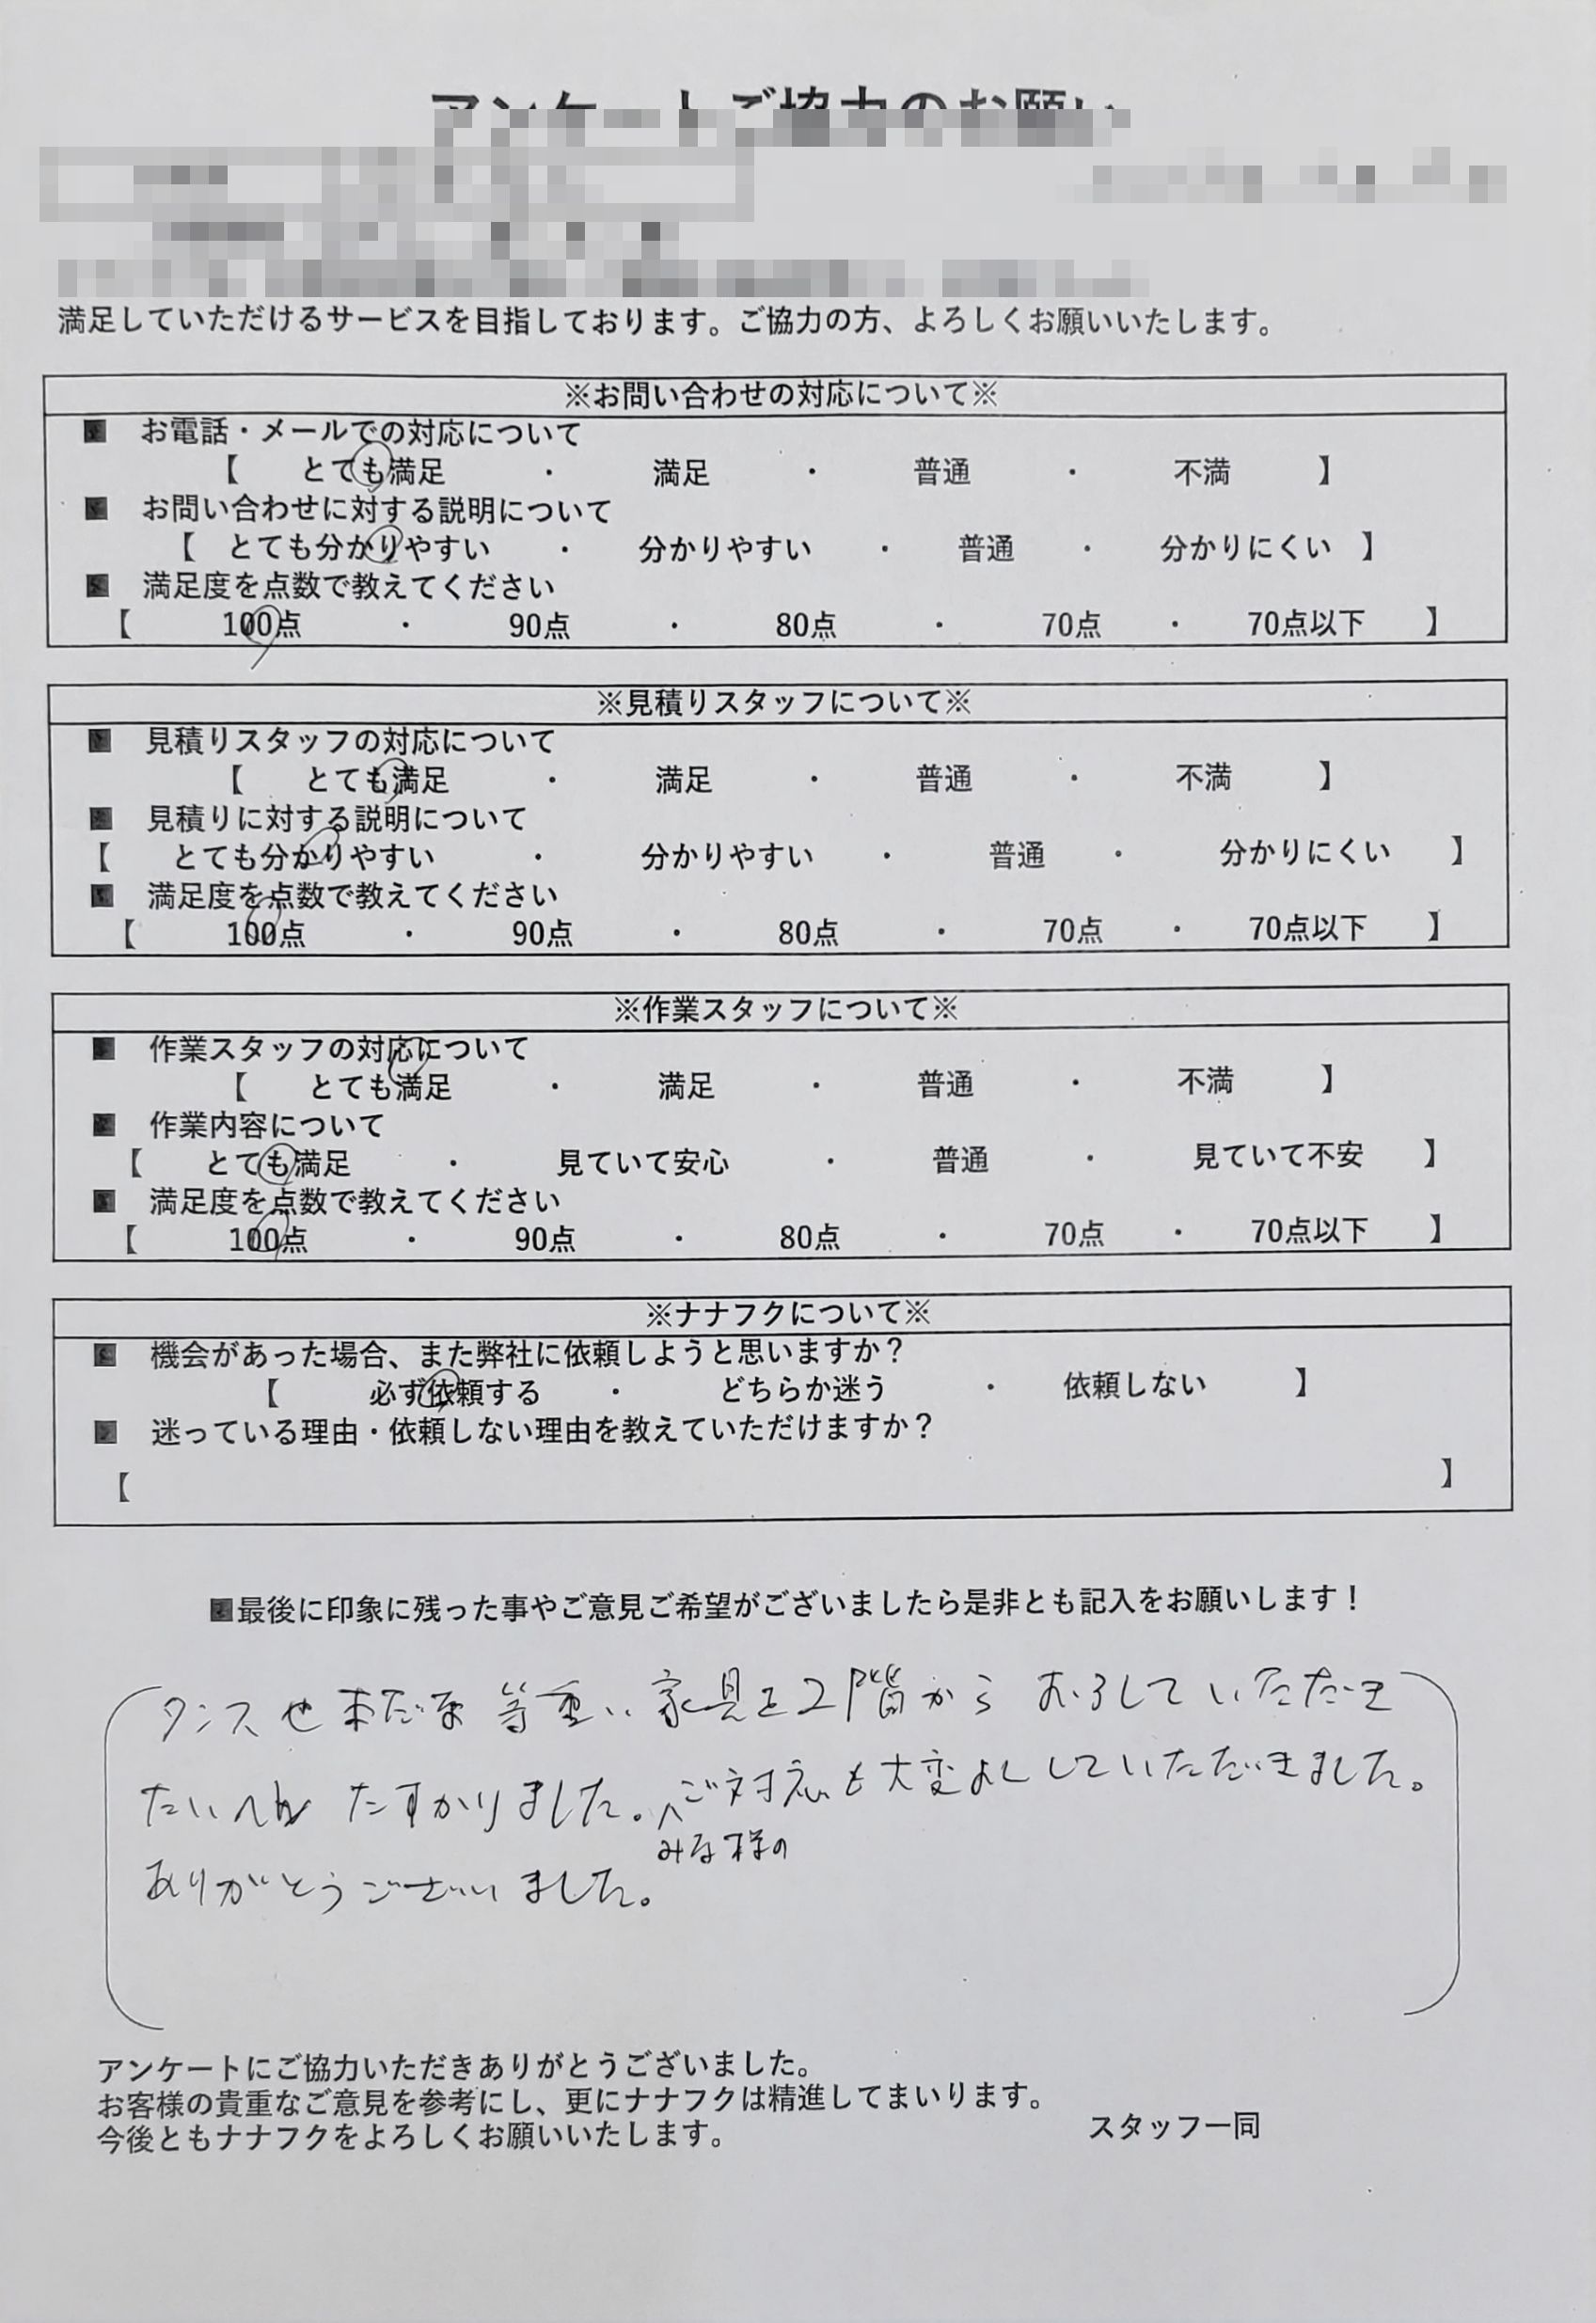 アンケートご協力のお願い
満足していただけるサービスを目指しております。ご協力の方、よろしくお願いいたします。
※お問い合わせの対応について※
■ お電話・メールでの対応について
【 とても満足 ・ 満足 ・ 普通 ・ 不満 】
■ お問い合わせに対する説明について
【 とても分かりやすい ・ 分かりやすい ・ 普通 ・ 分かりにくい 】
■ 満足度を点数で教えてください
【 100点 ・ 90点 ・ 80点 ・ 70点 ・ 70点以下 】
※見積りスタッフについて※
■ 見積りスタッフの対応について
【 とても満足 ・ 満足 ・ 普通 ・ 不満 】
■ 見積りに対する説明について
【 とても分かりやすい ・ 分かりやすい ・ 普通 ・ 分かりにくい 】
■ 満足度を点数で教えてください
【 100点 ・ 90点 ・ 80点 ・ 70点 ・ 70点以下 】
※作業スタッフについて※
■ 作業スタッフの対応について
【 とても満足 ・ 満足 ・ 普通 ・ 不満 】
■ 作業内容について
【 とても満足 ・ 見ていて安心 ・ 普通 ・ 見ていて不安 】
■ 満足度を点数で教えてください
【 100点 ・ 90点 ・ 80点 ・ 70点 ・ 70点以下 】
※ナナフクについて※
■ 機会があった場合、また弊社に依頼しようと思いますか？
【 必ず依頼する ・ どちらか迷う ・ 依頼しない 】
■ 迷っている理由・依頼しない理由を教えていただけますか？
【 】
■最後に印象に残った事やご意見ご希望がございましたら是非とも記入をお願いします！
タンスや本だな 等重い 家具を2階から おろしていただき
たいへん たすかりました。ご対応も大変よくしていただきました。
みな様の
ありがとうございました。
アンケートにご協力いただきありがとうございました。
お客様の貴重なご意見を参考にし、更にナナフクは精進してまいります。
今後ともナナフクをよろしくお願いいたします。
スタッフ一同